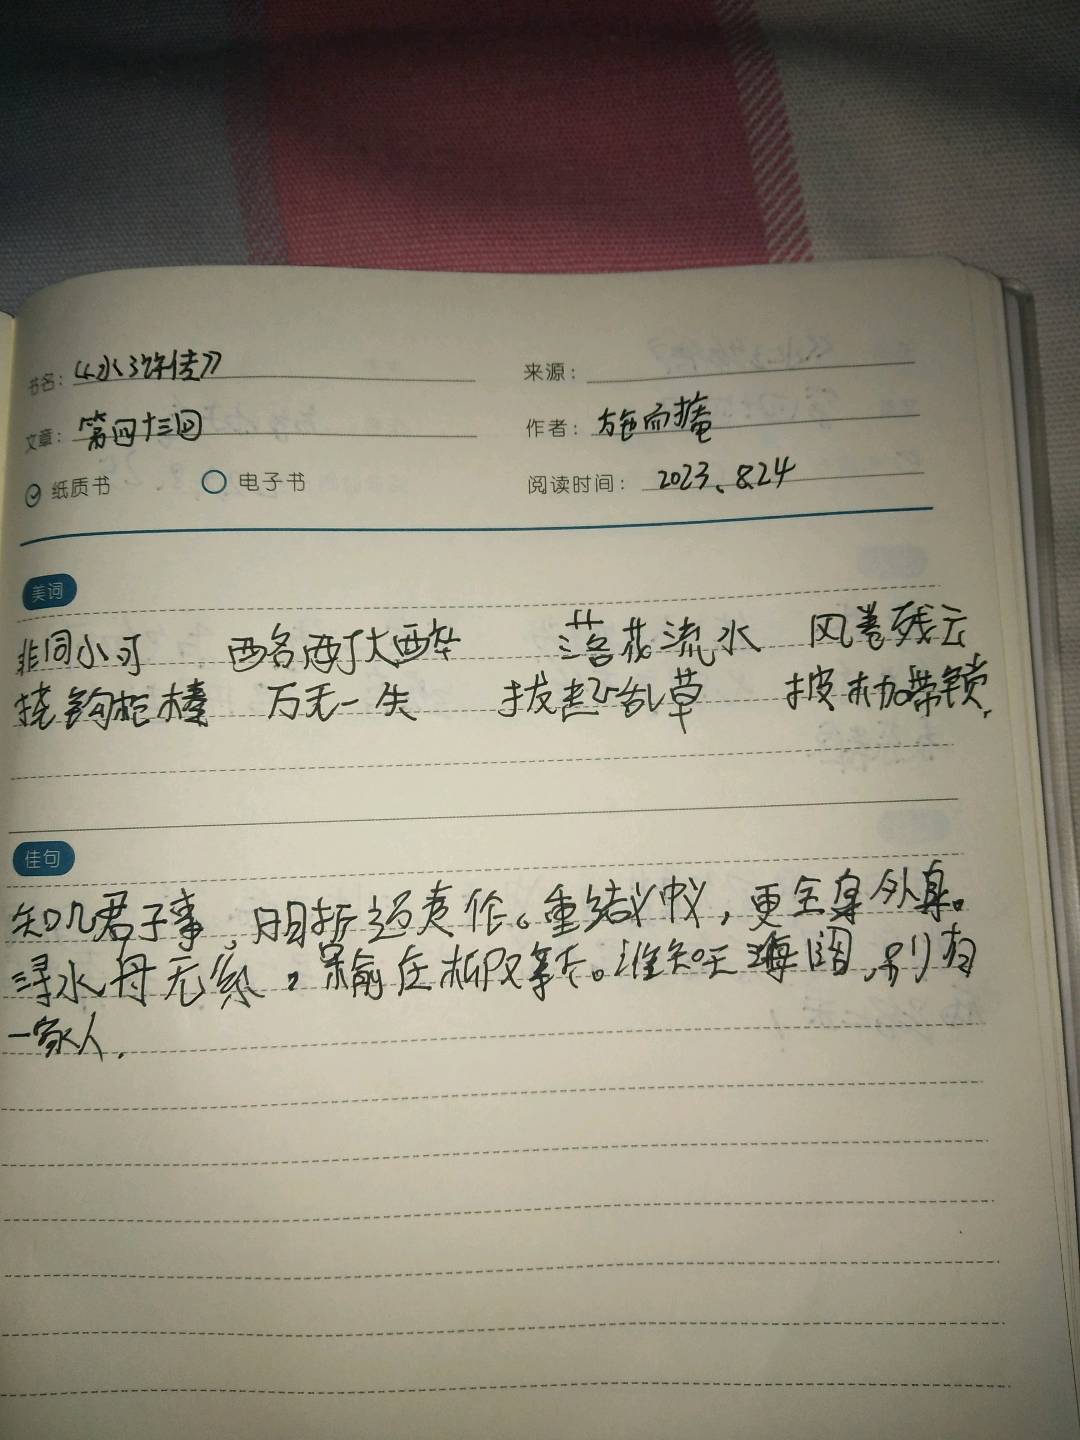 书名：《水浒传》 来源：
文章：第四十三回 作者：施而掩
纸质书 电子书 阅读时间：2023、8.24
美词
非同小可 酩酊大醉 落花流水 风卷残云
挠钩枪棒 万无一失 拔起乱草 披枷带锁.
佳句
知几君子事，明哲迈夷伦。重结义中义，更全身外身。
寻水母无系，榆庄柳又新。谁知天海阔，别有
一家人.